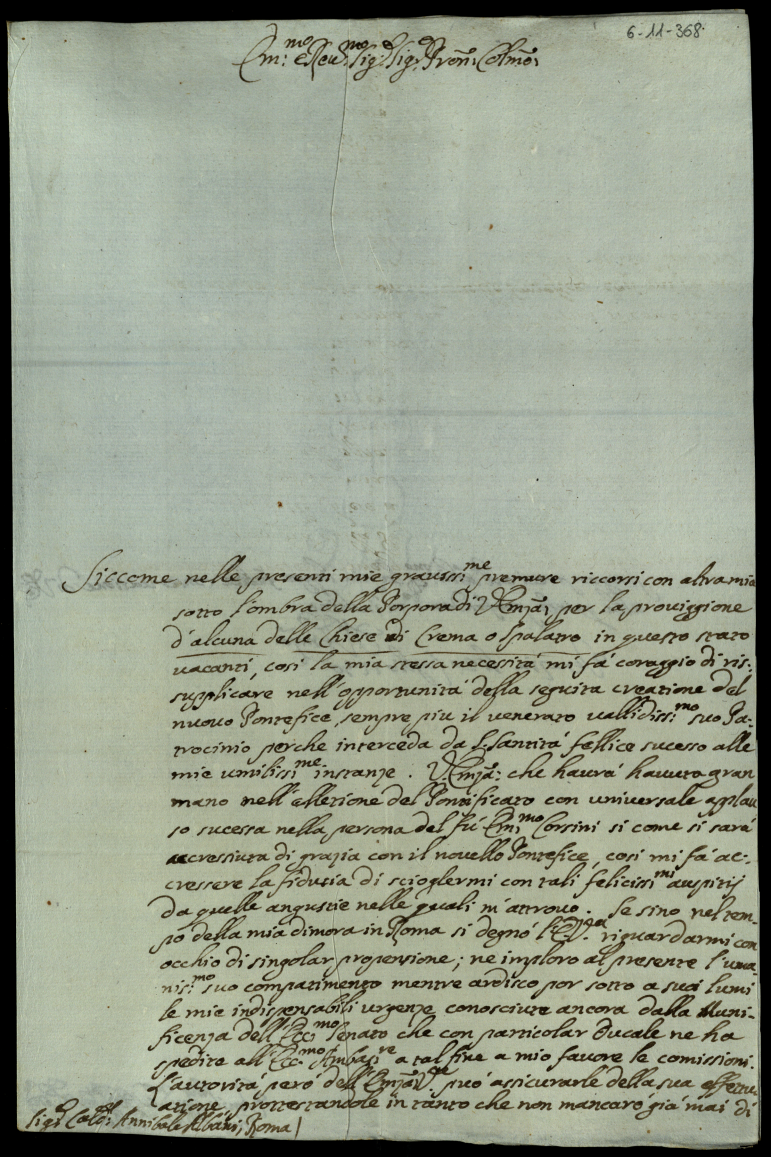 6-11-368.
Em:mo e Reu:mo Sig:r Sig:r Pron: Colmo:
Siccome nelle presenti mie grauissi:me premure riccorsi con altra mia
sotto l'ombra della Porpora di V. Emza: per la prouiggione
d'alcuna delle Chiese di Crema o Spalatro in questo stato
vacanti, così la mia stessa necessità mi fà coraggio di ris:
supplicare nell'opportunità della seguita creatione del
nuouo Pontefice, sempre più il venerato vallidissi:mo suo Pa:
trocinio perche interceda da S: Santità fellice sucesso alle
mie umilissi:me instanze. V. Emza: che haurà hauuto gran
mano nell'ellezione del Pontificato con uniuersale applau
so sucessa nella persona del fù Emi:mo Corsini si come si sarà
accressiuta di grazia con il nouello Pontefice, così mi fà ac:
cressere la fiducia di scioglermi con tali felicissi:mi auspitij
da quelle angustie nelle quali m'attrouo. Se sino nel tem:
pio della mia dimora in Roma si degnò l' riguardarmi con
occhio di singolar propensione; ne imploro al presente l'uma:
nis:mo suo compatimento mentre ardisco por sotto a suoi lumi
le mie indispensabili urgenze conosciute ancora dalla Muni:
ficenza dell'Ecci:mo Senato che con particolar Ducale ne ha
spedite all'Ecc:mo Ambasi:re a tal fine a mio fauore le comissioni.
L'autorità però dell'Emza V:ra può assicurarle della sua effetu:
atione, prottestandole in tanto che non mancarò già mai di
Sig:r Card:l Annibale Albani, Roma